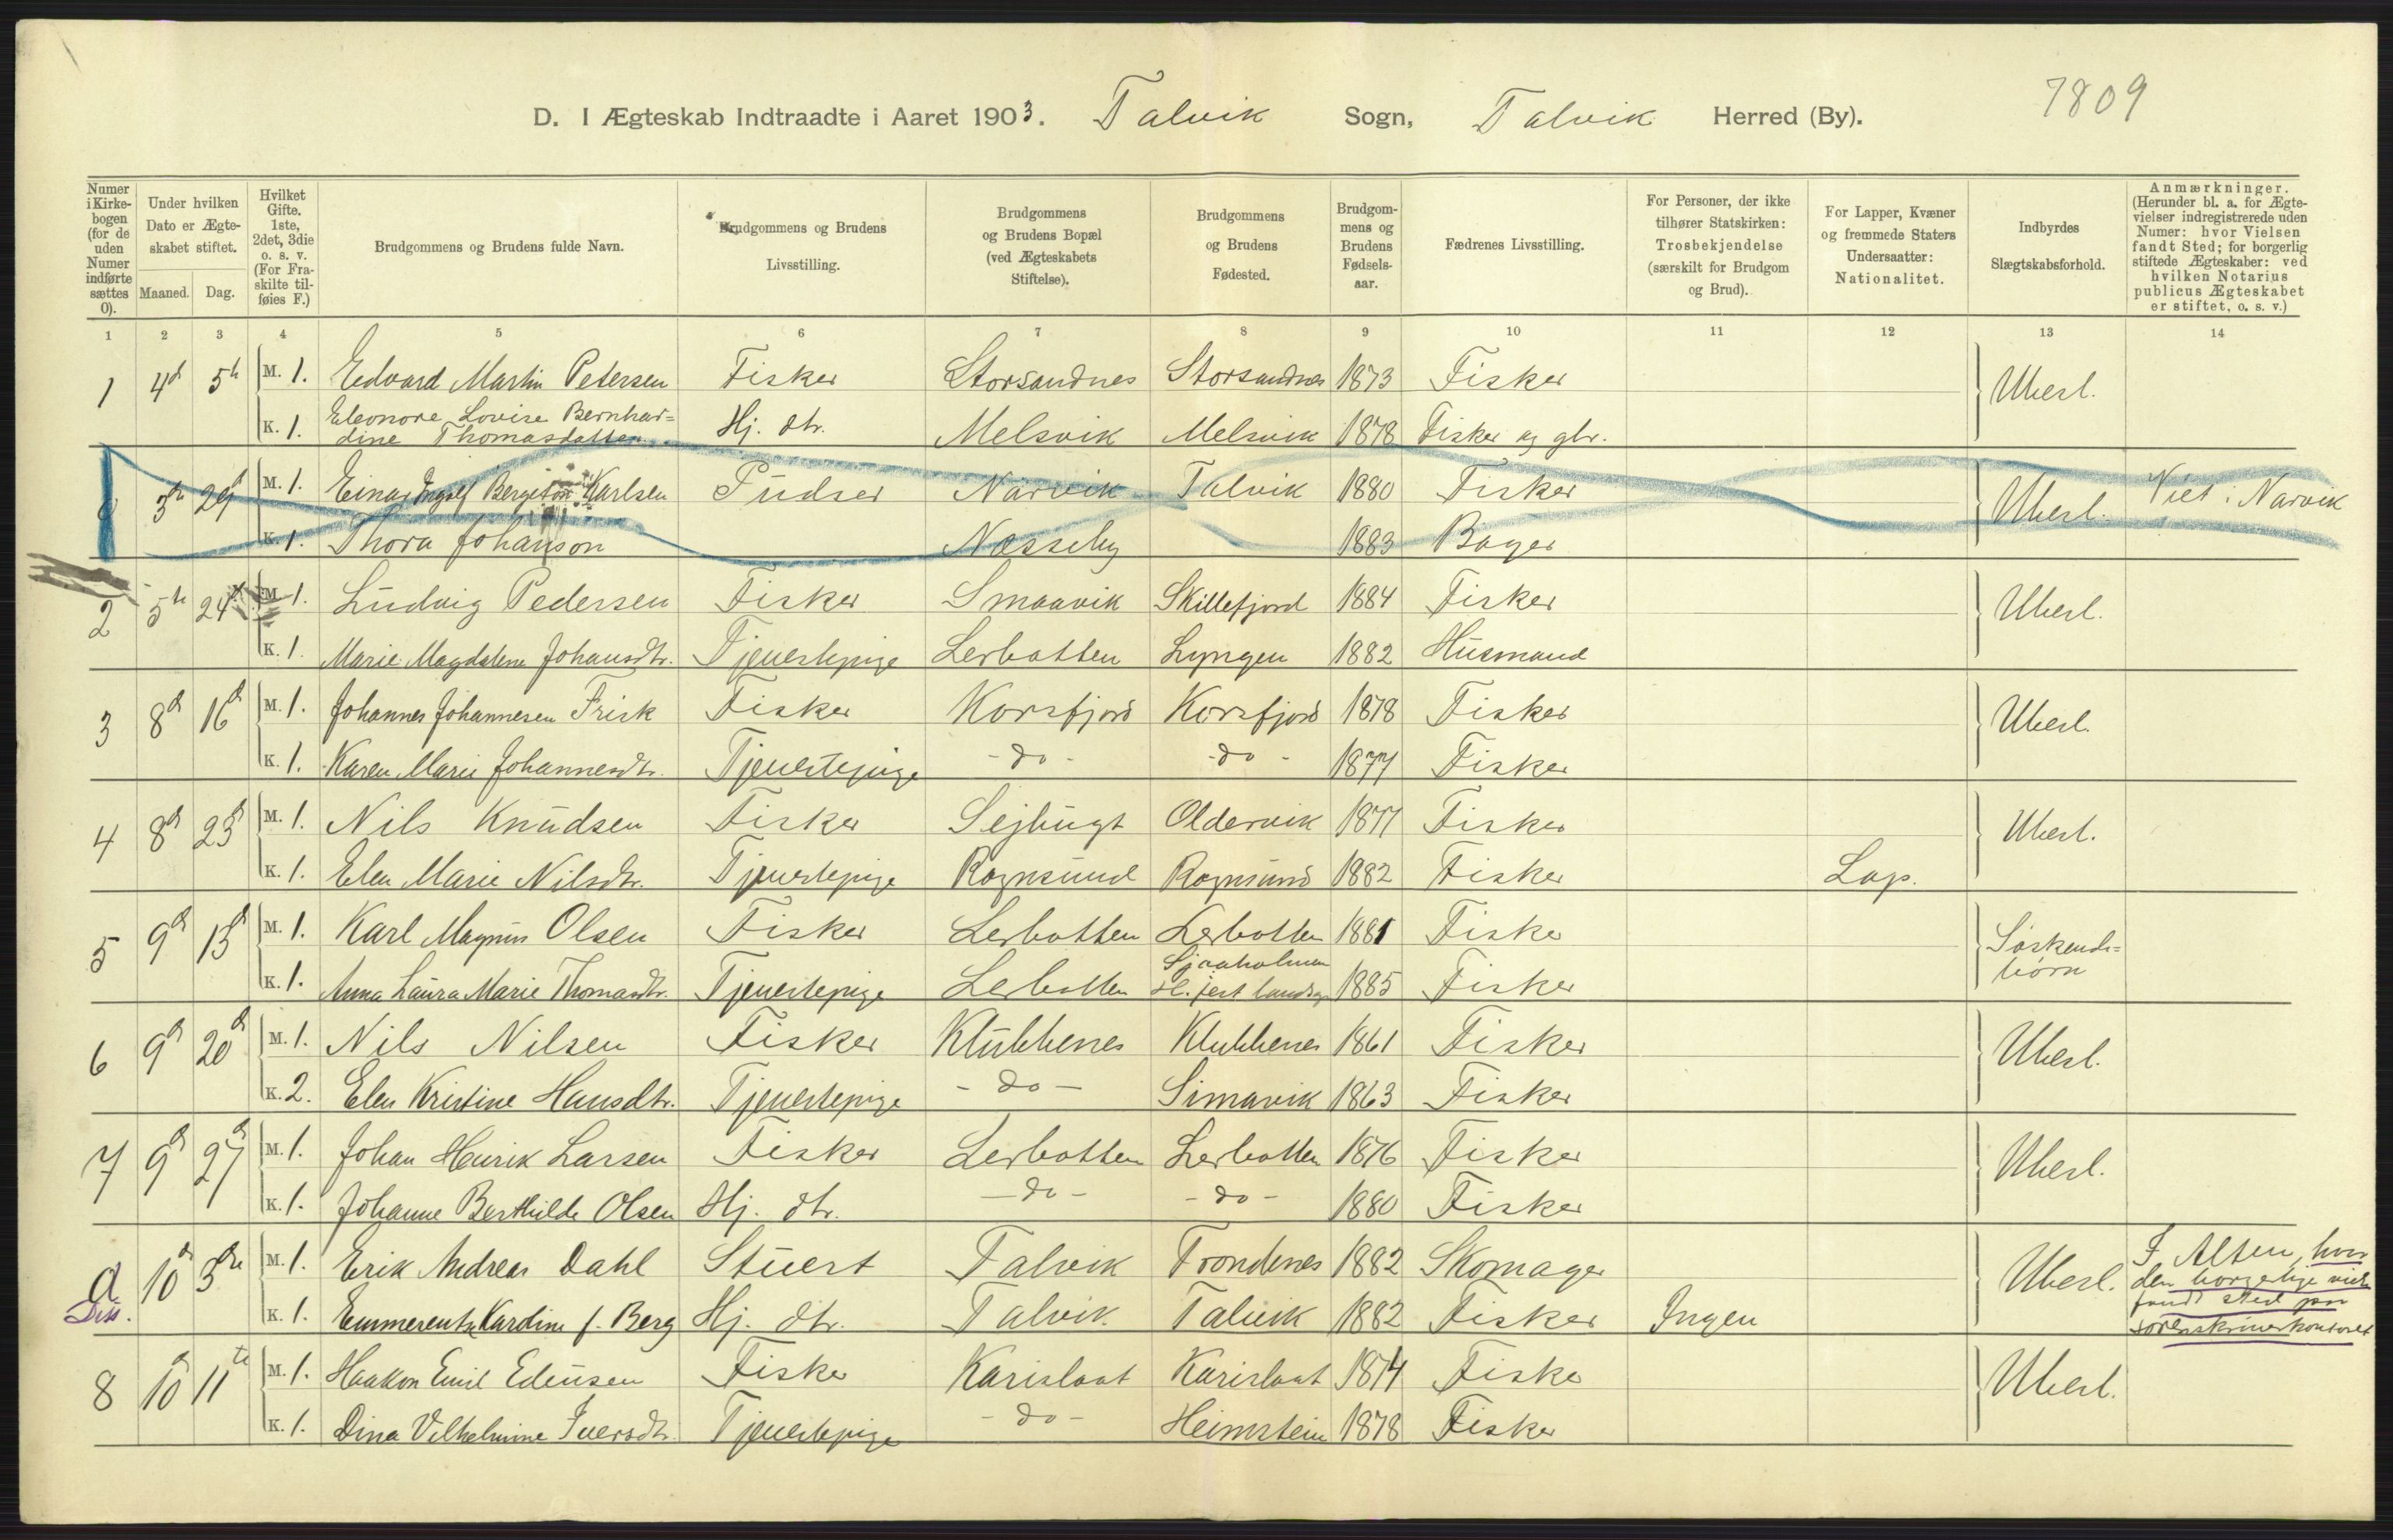 7809
D. I Ægteskab Indtraadte i Aaret 1903. Talvik Sogn, Talvik Herred (By).
Numer i Kirkebogen (for de uden Numer indførte sættes 0).
Under hvilken Dato er Ægteskabet stiftet.
Maaned. Dag.
Hvilket Gifte. 1ste, 2det, 3die o. s. v. (For Fraskilte tilføies F.)
Brudgommens og Brudens fulde Navn.
Brudgommens og Brudens Livsstilling.
Brudgommens og Brudens Bopæl (ved Ægteskabets Stiftelse).
Brudgommens og Brudens Fødested.
Brudgommens og Brudens Fødselsaar.
Fædrenes Livsstilling.
For Personer, der ikke tilhører Statskirken: Trosbekjendelse (særskilt for Brudgom og Brud).
For Lapper, Kvæner og fremmede Staters Undersaatter: Nationalitet.
Indbyrdes Slægtskabsforhold.
Anmærkninger. (Herunder bl. a. for Ægtevielser indregistrerede uden Numer: hvor Vielsen fandt Sted; for borgerlig stiftede Ægteskaber: ved hvilken Notarius publicus Ægteskabet er stiftet, o. s. v.)
1 2 3 4 5 6 7 8 9 10 11 12 13 14
1 4d 5te M. 1. Edvard Martin Petersen Fisker Storsandnes Storsandnes 1873 Fisker Ubesl.
K. 1. Eleonore Lovise Bernhar=
dine Thomasdatter Hj. dtr. Melsvik Melsvik 1878 Fisker og gbr.
0 3die 29d M. 1. Einar Ingolf Bergeton Karlsen Pudser Narvik Talvik 1880 Fisker Ubesl. Viet i Narvik
K. 1. Thora Johanson Næsseby 1883 Bager
2 5te 24d M. 1. Ludvig Pedersen Fisker Smaavik Skillefjord 1884 Fisker Ubesl.
K. 1. Marie Magdalene Johansdtr. Tjenestepige Lerbotten Lyngen 1882 Husmand
3 8d 16d M. 1. Johannes Johannesen Frisk Fisker Korsfjord Korsfjord 1878 Fisker Ubesl.
K. 1. Karen Marie Johannesdtr. Tjenestepige - do - - do - 1877 Fisker
4 8d 23d M. 1. Nils Knudsen Fisker Lejbugt Oldervik 1877 Fisker Ubesl.
K. 1. Elen Marie Nilsdtr. Tjenestepige Rognsund Rognsund 1882 Fisker Lap.
5 9d 13d M. 1. Karl Magnus Olsen Fisker Lerbotten Lerbotten 1881 Fisker Søskende=
børn
K. 1. Anna Laura Marie Thomasdtr. Tjenestepige Lerbotten Sjaaholmen
1885 Fisker
6 9d 20d M. 1. Nils Nilsen Fisker Klubbenes Klubbenes 1861 Fisker Ubesl.
K. 2. Elen Kristine Hansdtr. Tjenestepige - do - Simavik 1863 Fisker
7 9d 27d M. 1. Johan Henrik Larsen Fisker Lerbotten Lerbotten 1876 Fisker Ubesl.
K. 1. Johanne Berthilde Olsen Hj. dtr. - do - - do - 1880 Fisker
a 10d 3die M. 1. Erik Andreas Dahl Stuert Talvik Trondenes 1882 Skomager Ubesl. I Alten, hvor
den borgerlige vielse
fandt sted paa
sorenskriverkontoret
Diss. K. 1. Emmerentze Kardine f. Berg Hj. dtr. Talvik Talvik 1882 Fisker Ingen
8 10d 11te M. 1. Haakon Emil Edensen Fisker Karislaat Karislaat 1874 Fisker Ubesl.
K. 1. Dina Vilhelmine Iversdtr. Tjenestepige - do - Heimstein 1878 Fisker